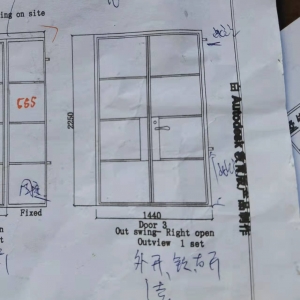 ing on site
595
2250
Fixed
1440
Door 3
Out swing- Right open
Outview 1 set
外开,铰右开
1套
由 Autodesk 教育版产品制作